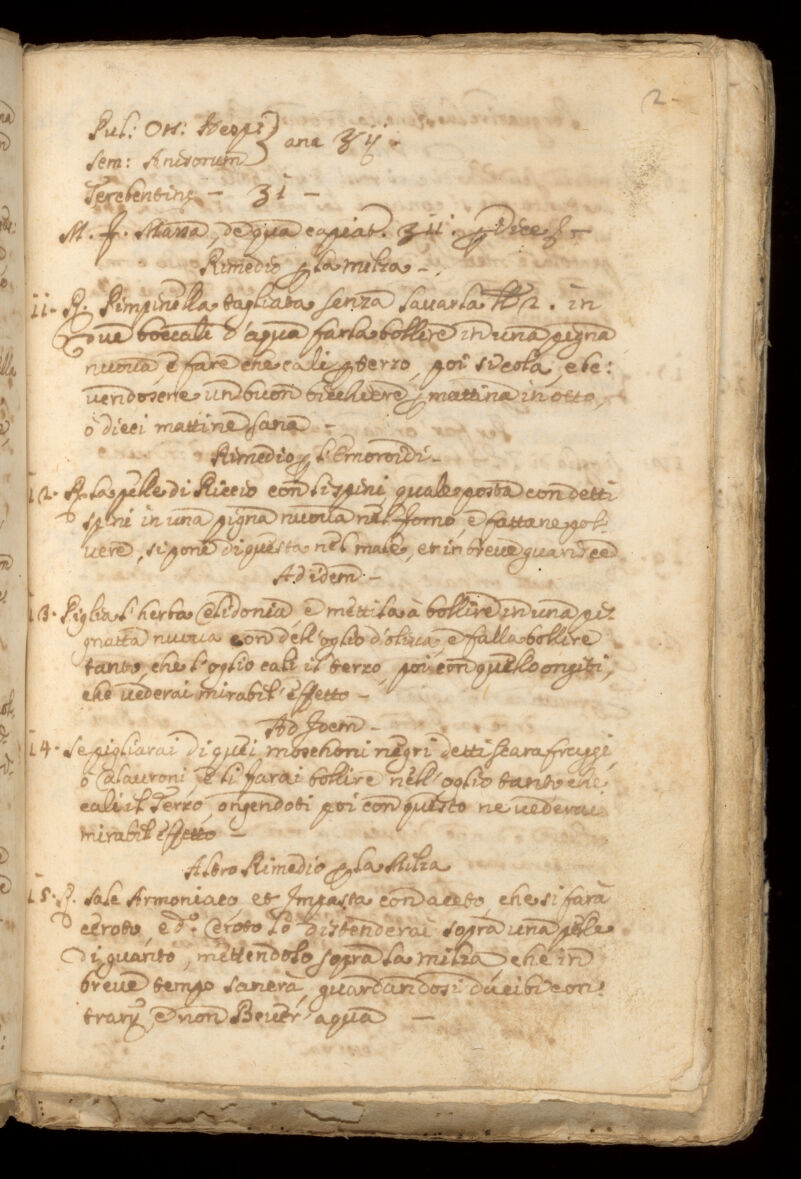 2
Pul: Oss:
Sem: Anisorum } ana ʒ ij.
Terebentine – ʒ i –
M. F. Massa, de qua capiat. ʒ ii.
Rimedio p la milza –
11. R. Pimpinella tagliata senza lavarla ℔ 2. in
due boccali d'aqua farla bollire in una pigna
nuova, e fare che cali p terzo, poi si cola, e be:
vendosene un buon bicchiere p mattina in otto,
o dieci mattine sana –
Rimedio p l'Emoroidi –
12. R. La pelle di Riccio con li spini quale posta con detti
spini in una pigna nuova nel forno, e fattane pol:
vere, si pone di questa nel male, et in breve guarisce
Ad idem –
13. Piglia l'herba Celidonia, e mettila à bollire in una pi:
gnatta nuova con dell'oglio d'oliva, e falla bollire
tanto, che l'oglio cali il terzo, poi con quello ongiti,
che vederai mirabil'effetto –
Ad Idem –
14. Se pigliarai di quei moschoni negri detti scarafreggi,
o Calauroni, e li farai bollire nell'oglio tanto che
cali il Terzo, ongendoti poi con questo ne vederai
mirabil effetto –
Altro Rimedio p la Milza
15. R. Sale Armoniaco et Impasta con aceto, che si farà
ceroto, e d.º Ceroto lo distenderai sopra una pelle
di guanto, mettendolo sopra la milza che in
breve tempo sanerà, guardandosi da cibi con:
trarij, e non Bever' aqua –